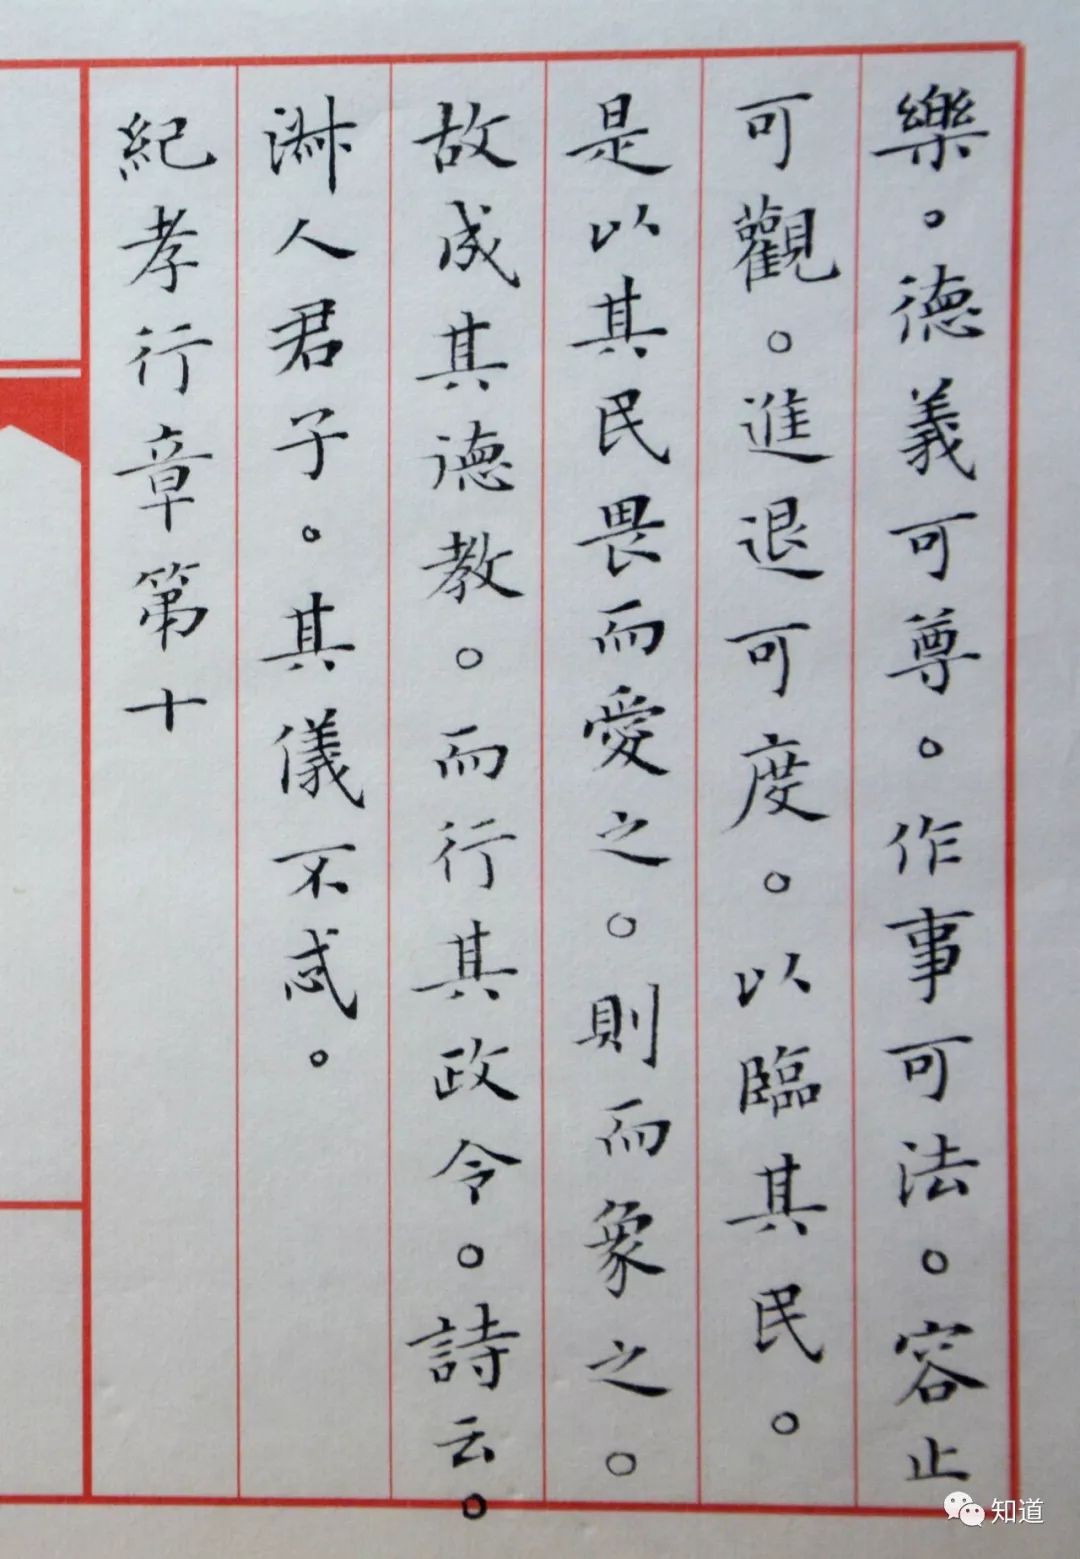 樂。德義可尊。作事可法。容止
可觀。進退可度。以臨其民。
是以其民畏而愛之。則而象之。
故成其德教。而行其政令。詩云。
淑人君子。其儀不忒。
紀孝行章第十
知道